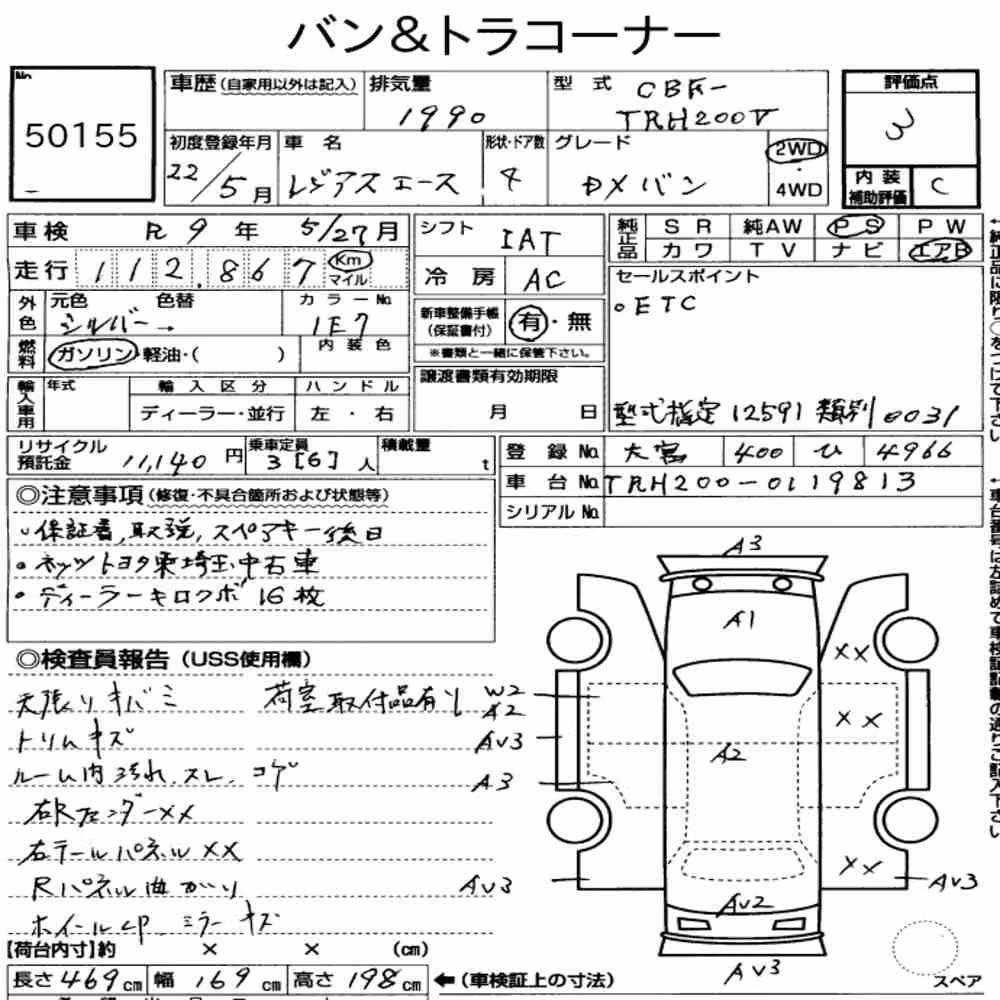 バン&トラコーナー
No.
50155
車歴(自家用以外は記入) 排気量 1990 型式 CBF-
TRH200V
評価点 3
初度登録年月 22/5月 車名 レジアスエース 形状・ドア数 4 グレード DXバン 2WD・4WD
内装補助評価 C
車検 R9年 5/27月
走行 112.867 Km マイル
シフト IAT
冷房 AC
純正品 SR 純AW PS PW
カワ TV ナビ エアB
外色 元色 シルバー→ 色替 カラーNo. 1E7
燃料 ガソリン・軽油・( ) 内装色
新車整備手帳(保証書付) 有・無
※書類と一緒に保管下さい。
セールスポイント
○ETC
型式指定 12591 類別 0031
輸入車用 年式 輸入区分 ハンドル
ディーラー・並行 左・右
譲渡書類有効期限
月 日
リサイクル預託金 11,140円 乗車定員 3[6]人 積載量 t
登録No. 大宮 400 ひ 4966
車台No. TRH200-0119813
シリアルNo.
◎注意事項(修復・不具合箇所および状態等)
○保証書,取説,スペアキー後日
•ネッツトヨタ東埼玉中古車
•ディーラーキロクボ 16枚
◎検査員報告(USS使用欄)
天張りキバミ 荷室取付品有り
トリムキズ
ルーム内汚れ.スレ.コゲ
右RフェンダーXX
右テールパネルXX
Rパネル曲がり
ホイールCP ミラーキズ
A3
A1
XX
W2
A2
XX
AV3
A2
A3
XX
AV3
AV3
AV2
AV3
スペア
【荷台内寸】約 × × (cm)
長さ469cm 幅169cm 高さ198cm ←(車検証上の寸法)